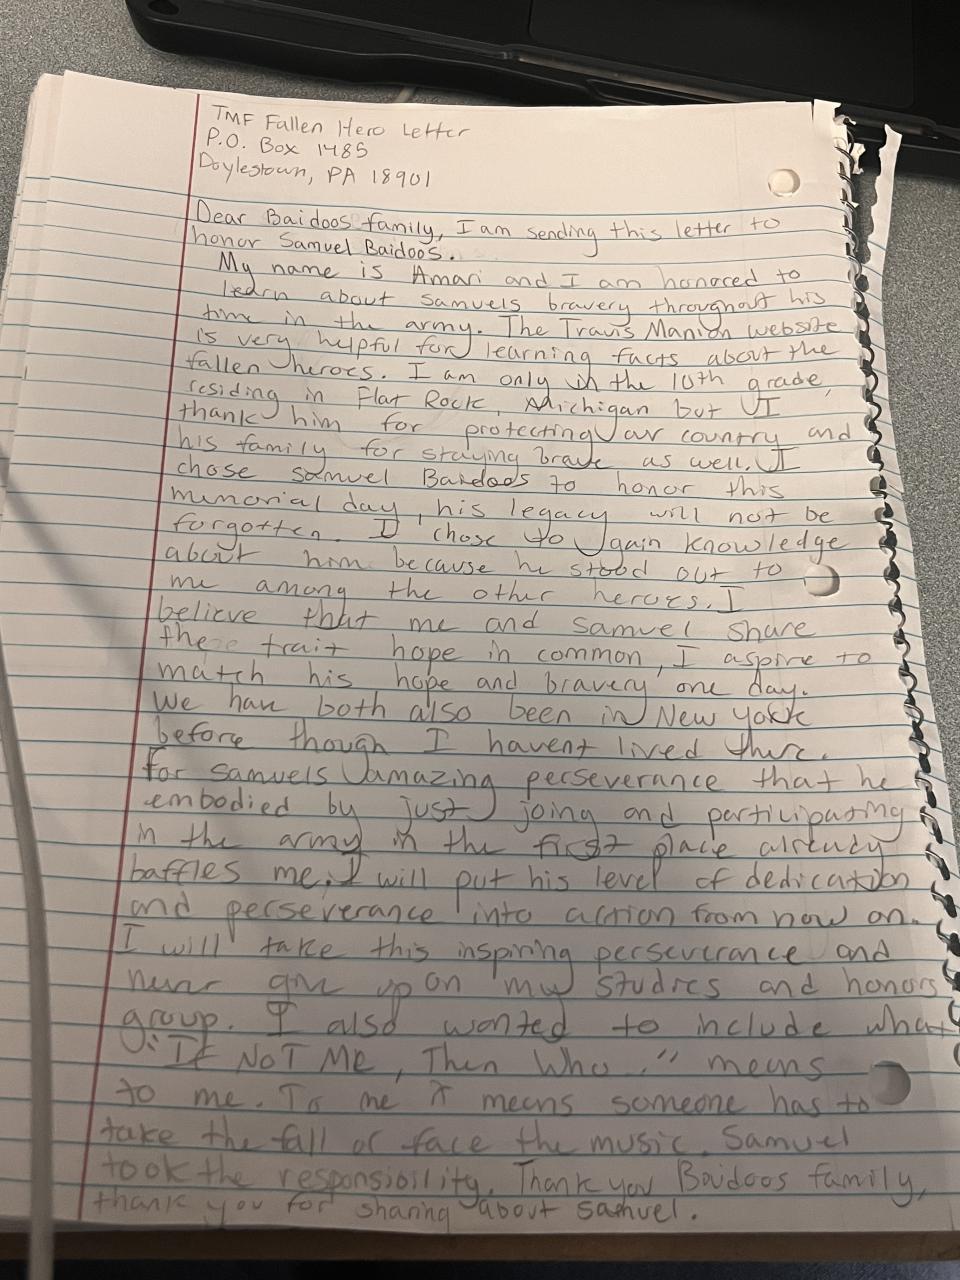 TMF Fallen Hero Letter
P.O. Box 1485
Doylestown, PA 18901
Dear Baidoos family, I am sending this letter to
honor Samuel Baidoos.
My name is Amari and I am honored to
learn about Samuels bravery throughout his
time in the army. The Travis Manion website
is very helpful for learning facts about the
fallen heroes. I am only in the 10th grade,
residing in Flat Rock, Michigan but I
thank him for protecting our country and
his family for staying brave as well. I
chose Samuel Baidoos to honor this
memorial day, his legacy will not be
forgotten. I chose to gain knowledge
about him because he stood out to
me among the other heroes. I
believe that me and Samuel share
the trait hope in common, I aspire to
match his hope and bravery one day.
We have both also been in New York
before though I havent lived there.
For Samuels amazing perseverance that he
embodied by just joing and participating
in the army in the first place already
baffles me. I will put his level of dedication
and perseverance into action from now on.
I will take this inspiring perseverance and
never give up on my studies and honors
group. I also wanted to include what
"If NOT ME, Then Who.." means
to me. To me it means someone has to
take the fall or face the music. Samuel
took the responsibility. Thank you Baidoos family,
thank you for sharing about Samuel.